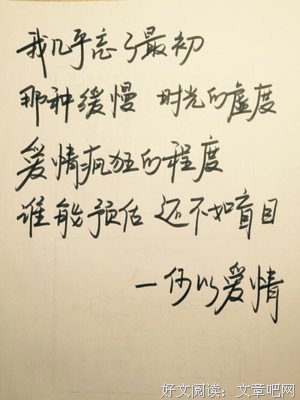 我几乎忘了最初
那种缓慢 时光的虚度
爱情疯狂的程度
谁能预估 还不如盲目
—何以爱情
好文阅读：文章吧网